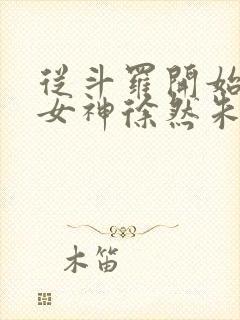 從斗羅開始
女神徐然朱
木笛